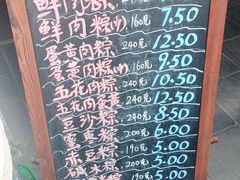 鲜肉粽
鲜肉粽(小) 160克 7.50
蛋黄肉粽 240克 12.50
蛋黄肉粽(小) 160克 9.50
五花肉粽 240克 10.50
五花肉蛋黄 240克 12.50
豆沙粽 240克 8.50
蜜枣粽 200克 6.00
赤豆粽 190克 5.00
碱水粽 190克 5.00
5.00